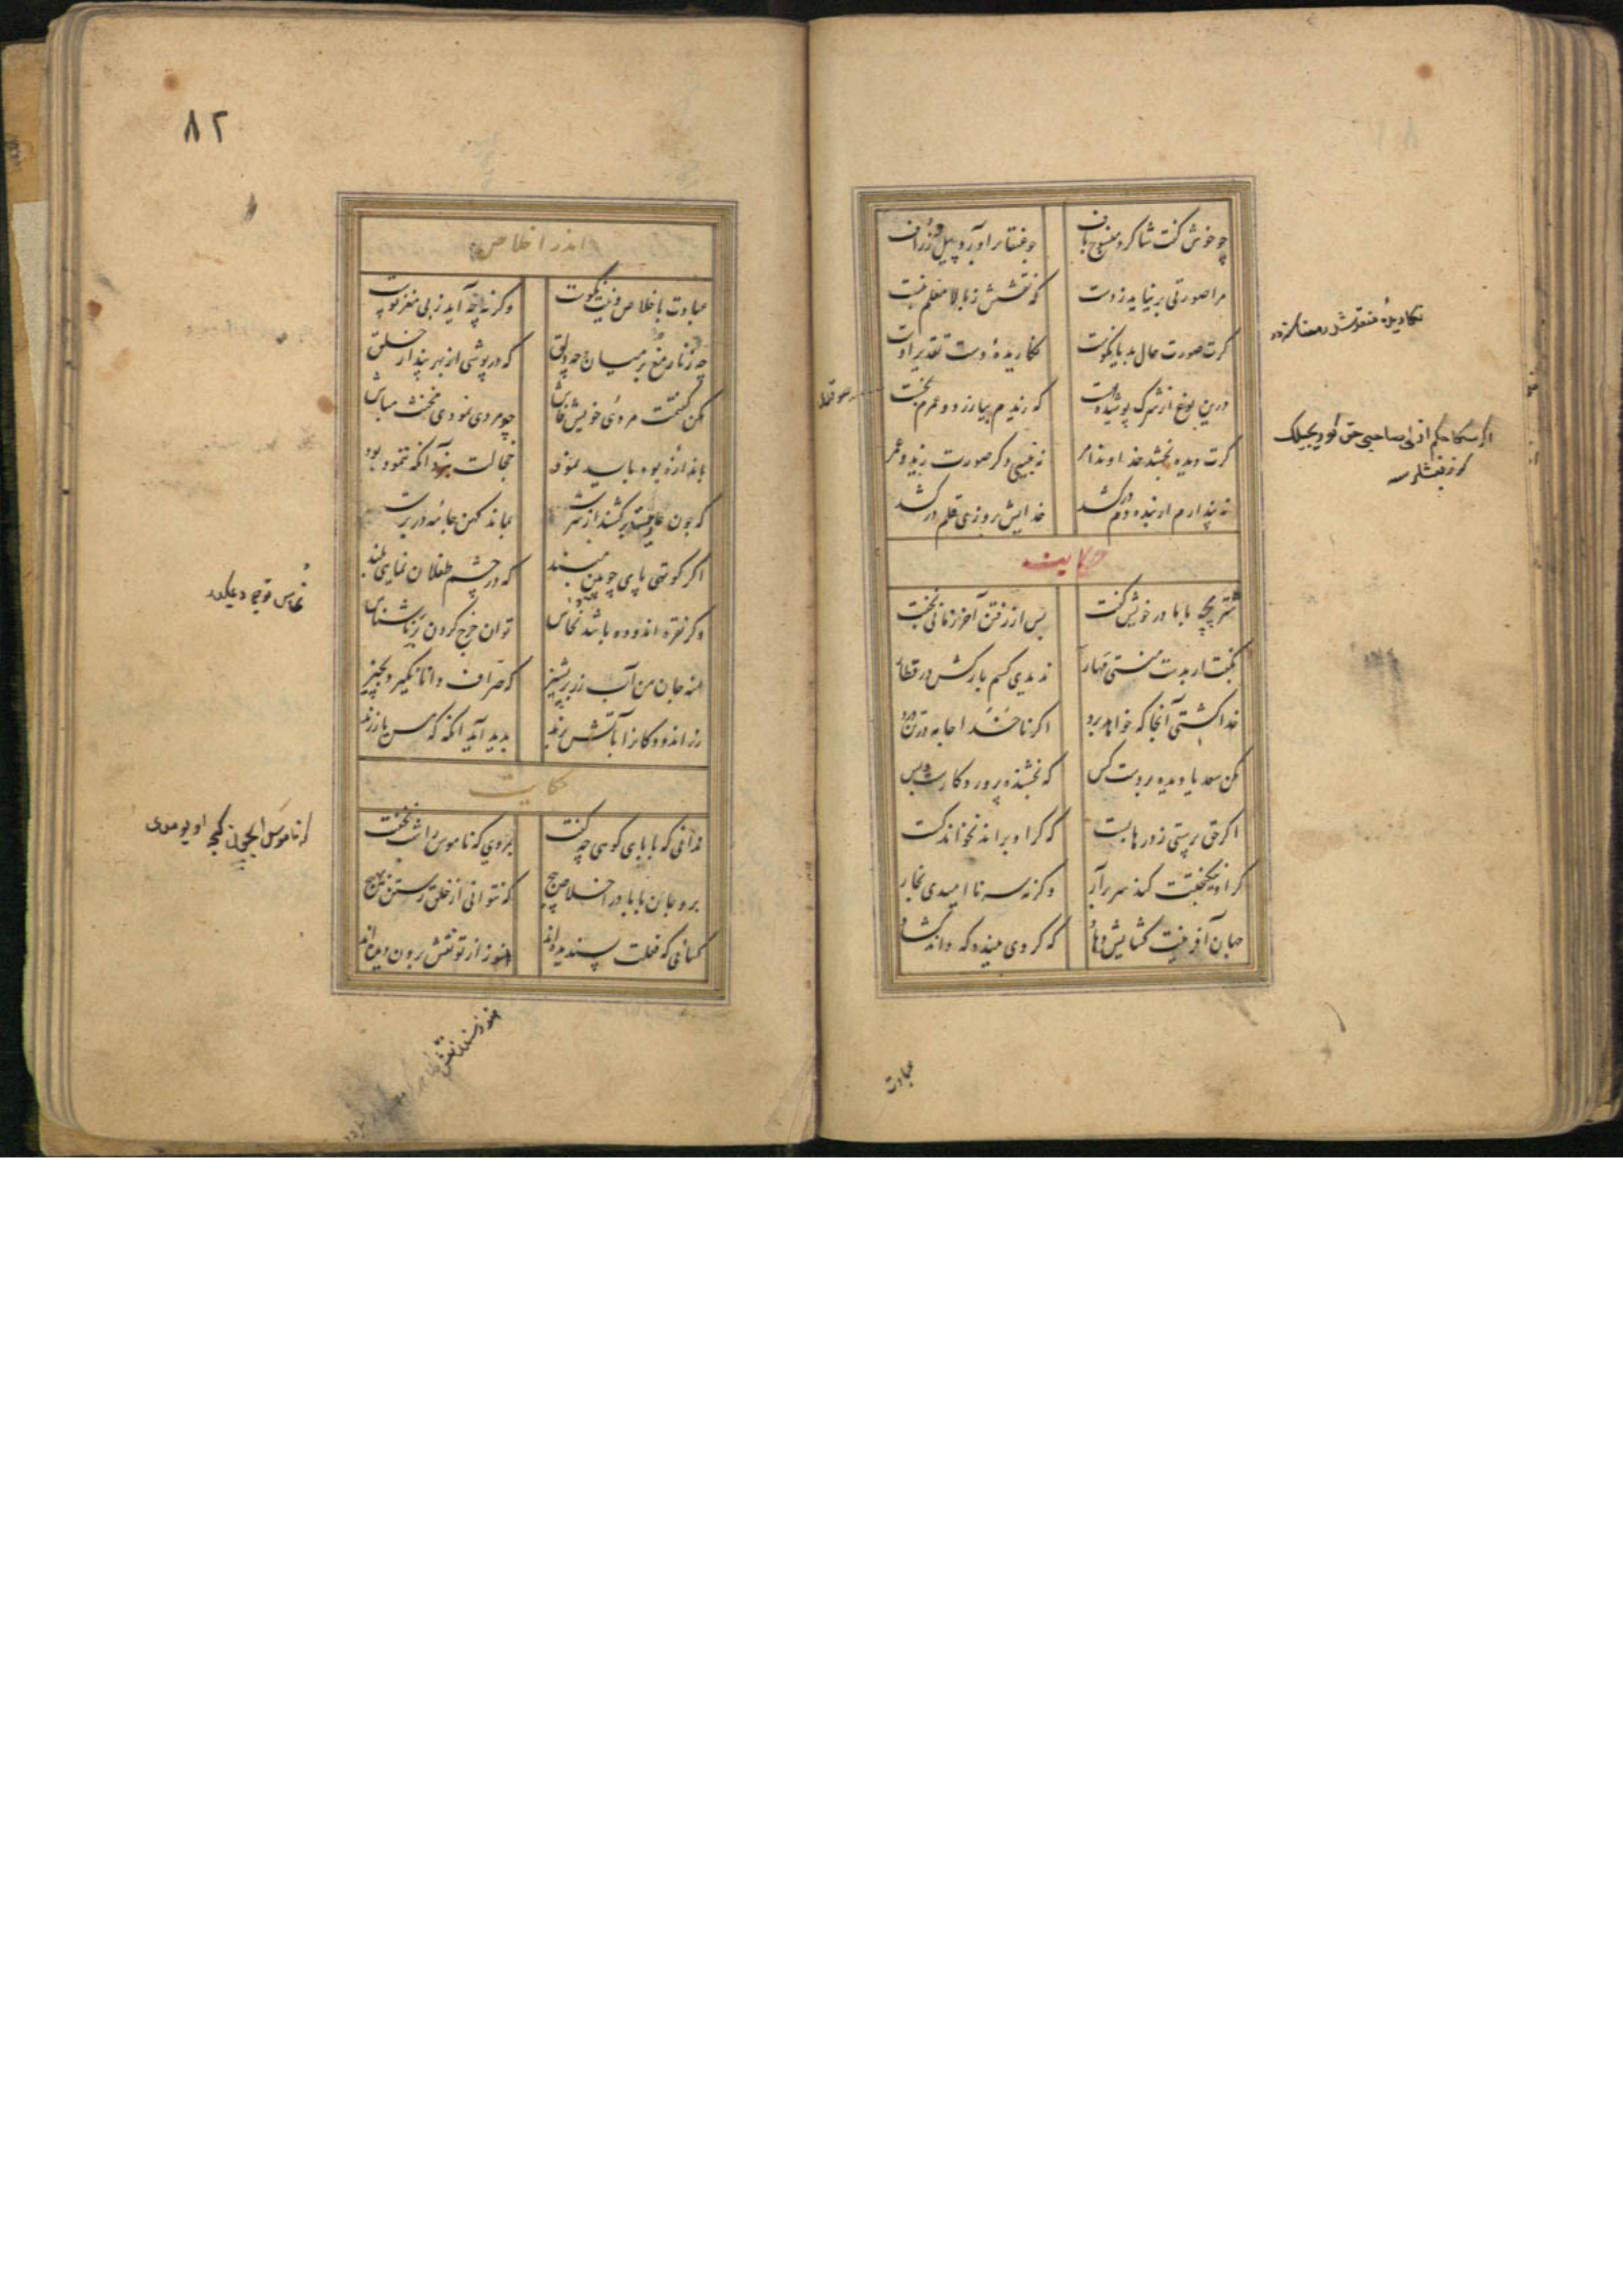 چو خوش گفت شاگرد منسوج باف
چو عنقا برآورد و پیل و زراف
مرا صورتی برنیاید ز دست
که نقشش ز بالا معلم نبست
گرت صورت حال بد یا نکوست
نگاریدهٔ دست تقدیر اوست
درین نوع از شرک پوشیده هست
که زیدم بیازرد و عمرم بخست
گرت دیده بخشد خداوند امر
نه بینی دگر صورت زید و عمر
نه پندارم ار بنده دم درکشد
خدایش بروزی قلم درکشد
حکایت
شتر بچه با مادر خویش گفت
پس از رفتن آخر زمانی بخفت
بگفت ار بدست منستی مهار
ندیدی کسم بارکش در قطار
خدا کشتی آنجا که خواهد برد
اگر ناخدا جامه بر تن درد
مکن سعدیا دیده بر دست کس
که بخشنده پروردگارست و بس
اگر حق پرستی ز درها بست
که گر او براند نخواند کست
گر او نیکبختت کند سر برآر
وگرنه سر ناامیدی بخار
عبادت
٨٢
اندر اخلاص
عبادت باخلاص نیت نکوست
وگرنه چه آید ز بی مغز پوست
چه زنار مغ بر میان چه دلق
که درپوشی از بهر پندار خلق
مکن گفتمت مردی خویش فاش
چو مردی نمودی مخنث مباش
باندازهٔ بود باید نمود
خجالت نبرد آنکه ننمود بود
که چون عاریت برکشند از سرت
بماند کهن جامه در برت
اگر کوتهی پای چوبین مبند
که در چشم طفلان نمایی بلند
وگر نقره اندوده باشد نحاس
توان خرج کردن بر ناشناس
منه جان من آب زر بر پشیز
که صراف دانا نگیرد بچیز
زر اندودکانرا بآتش برند
بدید آید آنگه که مس یا زرند
حکایت
ندانی که بابای کوهی چه گفت
بمردی که ناموس را شب نخفت
برو جان بابا در اخلاص پیچ
که نتوانی از خلق رستن بهیچ
کسانی که فعلت پسندیده‌اند
هنوز از تو نقش برون دیده‌اند